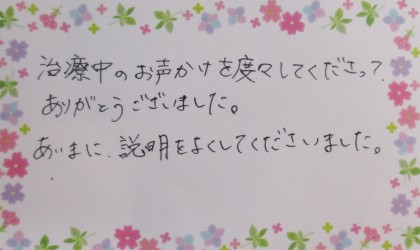 治療中のお声かけを度々してくださって、
ありがとうございました。
あいまに、説明をよくしてくださいました。